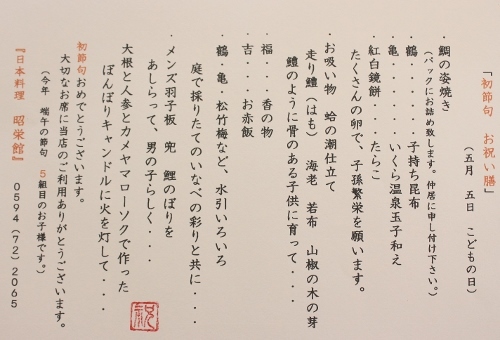 「初節句 お祝い膳」
（五月 五日 こどもの日）
・鯛の姿焼き
（パックにお詰め致します。仲居に申し付け下さい。）
・鶴．．．．．．子持ち昆布
・亀．．．．．．いくら温泉玉子和え
・紅白鏡餅．．．．たらこ
たくさんの卵で、子孫繁栄を願います。
・お吸い物 蛤の潮仕立て
走り鱧（はも） 海老 若布 山椒の木の芽
鱧のように骨のある子供に育って．．．．
・福．．．香の物
・吉．．．お赤飯
・鶴・亀・松竹梅など、水引いろいろ
庭で採りたてのいなべの彩りと共に．．．．
・メンズ羽子板 兜 鯉のぼりを
あしらって、男の子らしく．．．
大根と人参とカメヤマローソクで作った
ぼんぼりキャンドルに火を灯して．．．．
初節句おめでとうございます。
大切なお席に当店のご利用ありがとうございます。
（今年 端午の節句 5組目のお子様です。）
『日本料理 昭栄館』 0594（72）2065